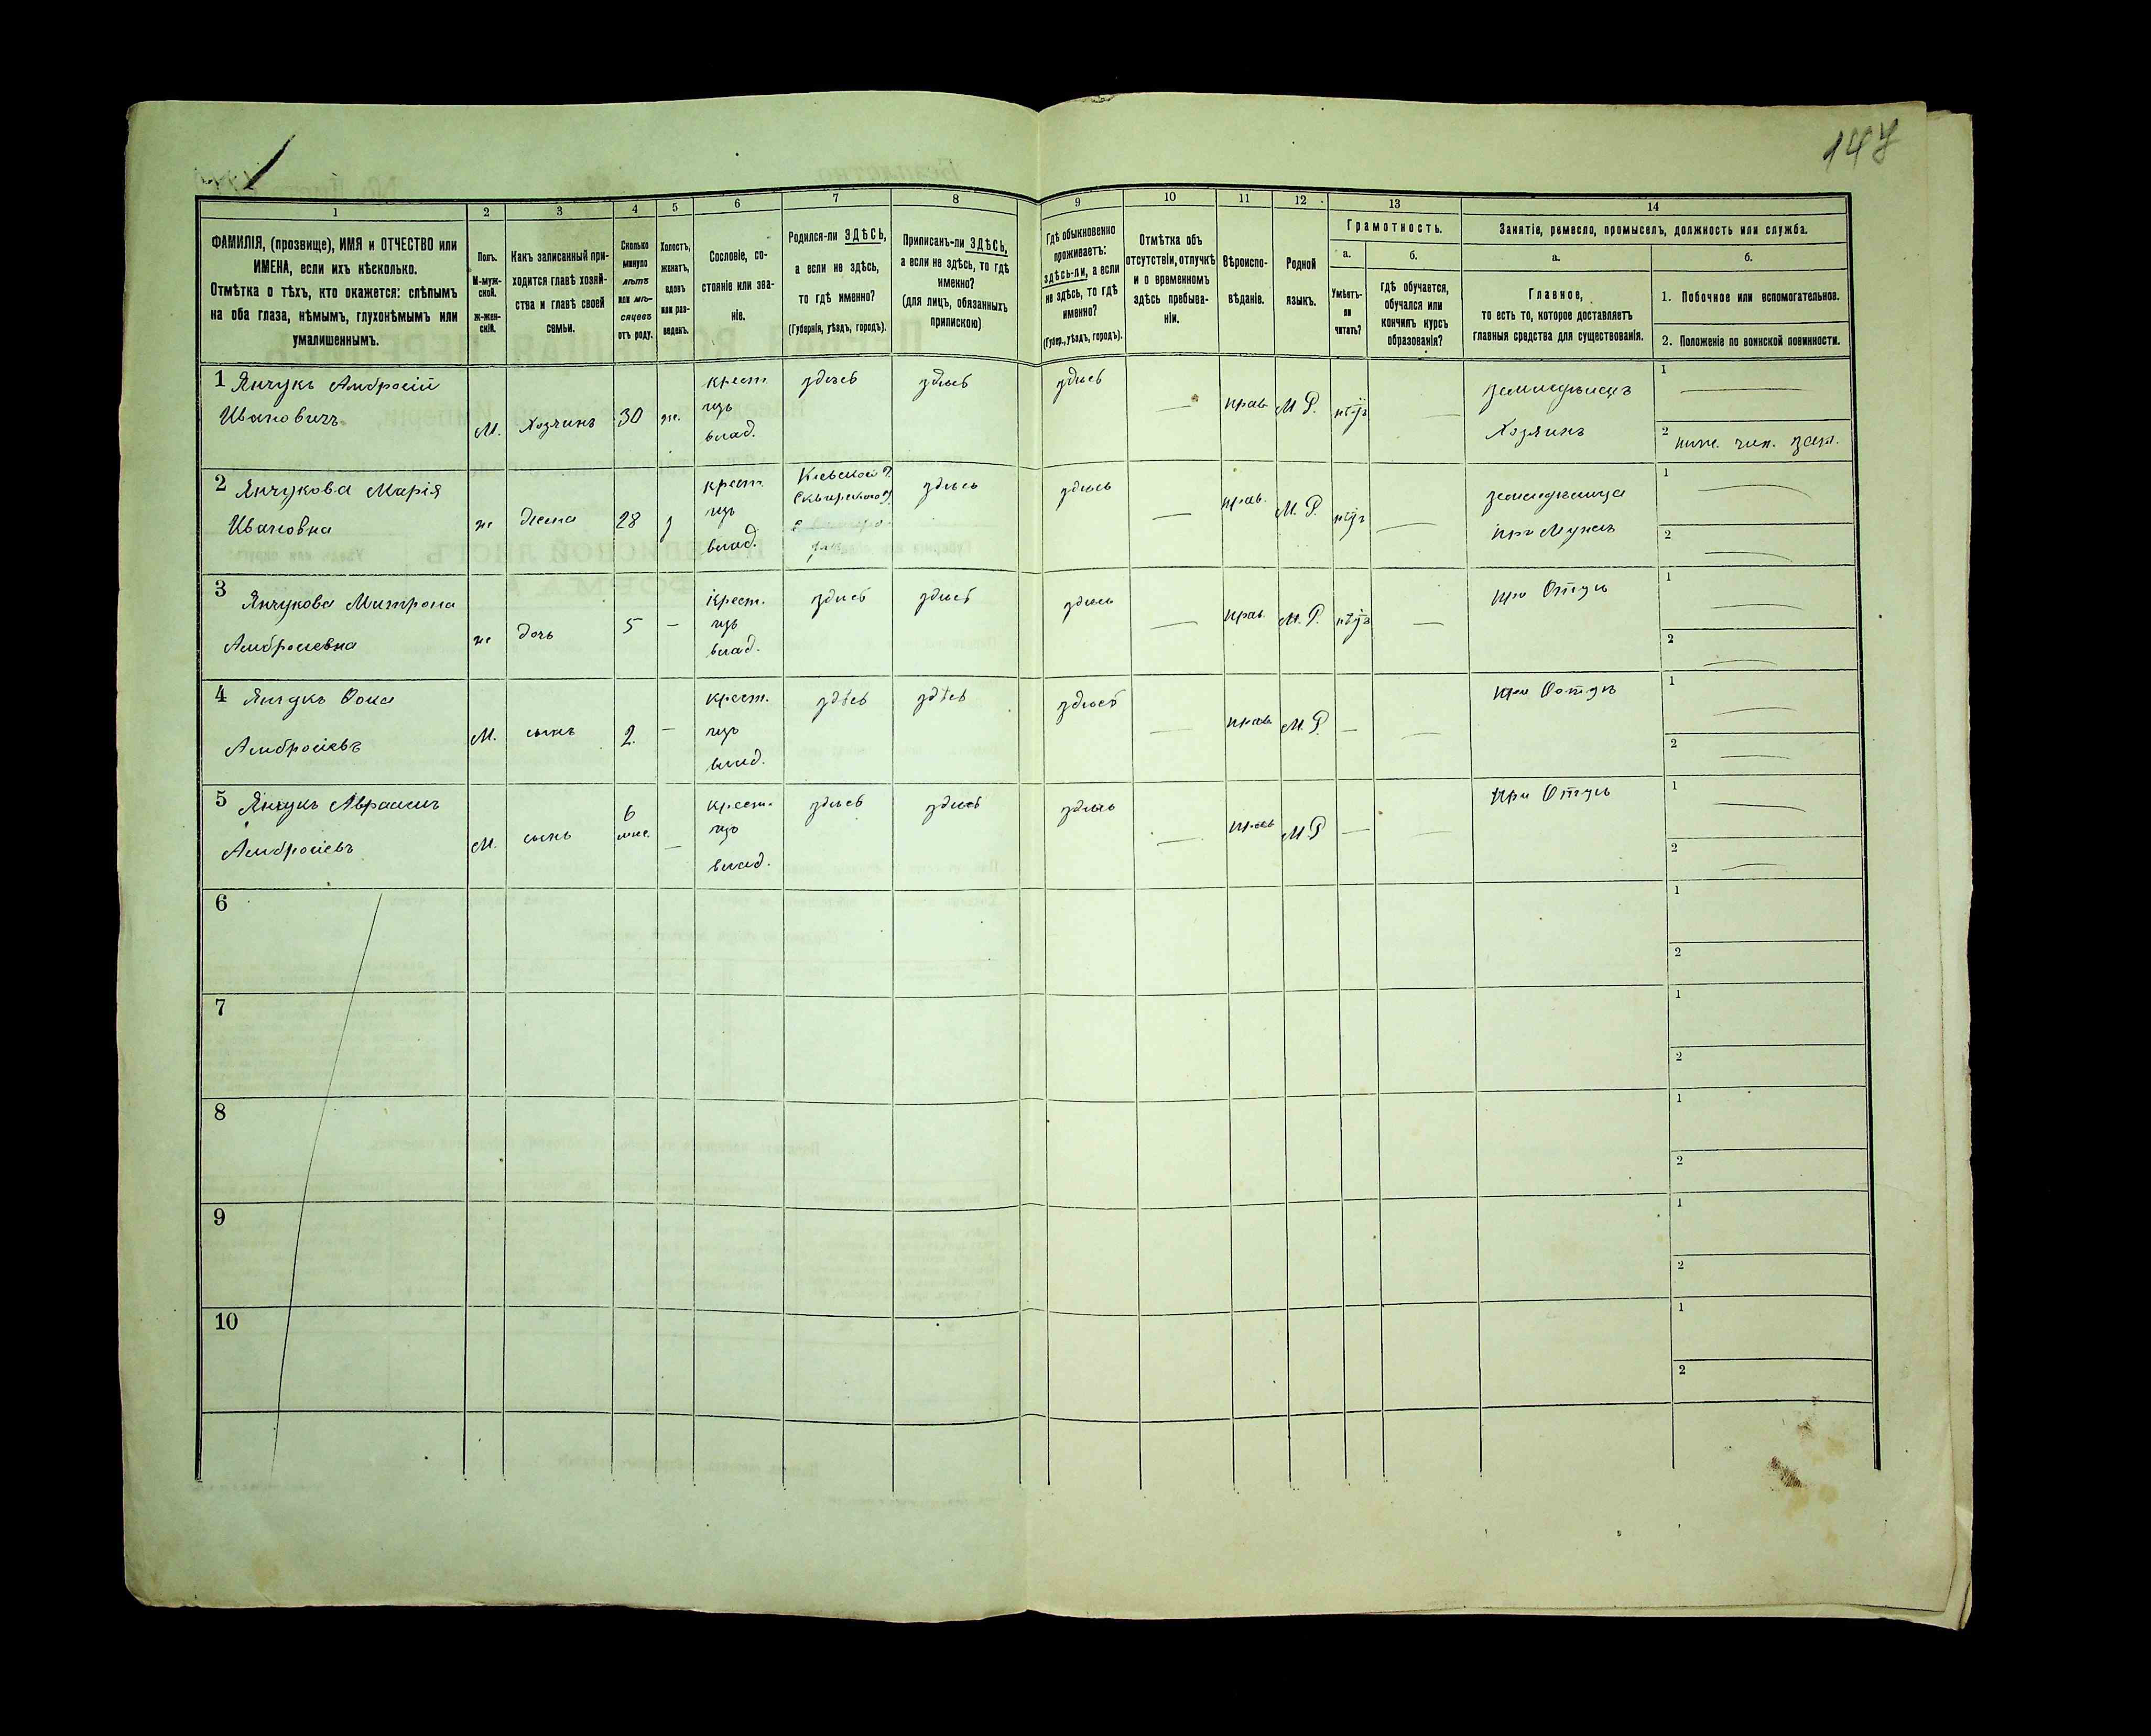 147
1
2
3
4
5
6
7
8
9
10
11
12
13
14
ФАМИЛІЯ, (прозвище), ИМЯ и ОТЧЕСТВО или
ИМЕНА, если ихъ нѣсколько.
Отмѣтка о тѣхъ, кто окажется: слѣпымъ
на оба глаза, нѣмымъ, глухонѣмымъ или
умалишеннымъ.
Полъ.
М-муж-
ской.
ж-жен-
скій.
Какъ записанный при-
ходится главѣ хозяй-
ства и главѣ своей
семьи.
Сколько
минуло
лѣтъ
или мѣ-
сяцевъ
отъ роду.
Холостъ,
женатъ,
вдовъ
или раз-
веденъ.
Сословіе, со-
стояніе или зва-
ніе.
Родился-ли ЗДѢСЬ,
а если не здѣсь,
то гдѣ именно?
(Губернія, уѣздъ, городъ).
Приписанъ-ли ЗДѢСЬ,
а если не здѣсь, то гдѣ
именно?
(для лицъ, обязанныхъ
припискою)
Гдѣ обыкновенно
проживаетъ:
здѣсь-ли, а если
не здѣсь, то гдѣ
именно?
(Губер., уѣздъ, городъ).
Отмѣтка объ
отсутствіи, отлучкѣ
и о временномъ
здѣсь пребыва-
ніи.
Вѣроиспо-
вѣданіе.
Родной
языкъ.
Грамотность.
а.
Умѣетъ-
ли
читать?
б.
гдѣ обучается,
обучался или
кончилъ курсъ
образованія?
Занятіе, ремесло, промыселъ, должность или служба.
а.
Главное,
то есть то, которое доставляетъ
главныя средства для существованія.
б.
1. Побочное или вспомогательное.
2. Положеніе по воинской повинности.
1 Янчукъ Амбросій
Ивановичъ
М.
Хозяинъ
30
же.
крест.
изъ
влад.
здѣсь
здѣсь
здѣсь
—
прав.
М. Р.
нѣтъ
—
земледѣлецъ
Хозяинъ
1 —
2 ниж. чин. зап.
2 Янчукова Марія
Ивановна
же
Жена
28
з
крест.
изъ
влад.
Кіевской г.
Сквирскаго у.
здѣсь
здѣсь
—
прав.
М. Р.
нѣтъ
—
земледѣлица
при Мужѣ
1 —
2 —
3 Янчукова Митрона
Амбросіевна
же
дочь
5
—
крест.
изъ
влад.
здѣсь
здѣсь
здѣсь
—
прав.
М. Р.
нѣтъ
—
при Отцѣ
1 —
2 —
4 Янчукъ Фока
Амбросіевъ
М.
сынъ
2.
—
крест.
изъ
влад.
здѣсь
здѣсь
здѣсь
—
прав.
М. Р.
—
—
при Отцѣ
1 —
2 —
5 Янчукъ Авраамъ
Амбросіевъ
М.
сынъ
6
мѣс.
—
крест.
изъ
влад.
здѣсь
здѣсь
здѣсь
—
прав.
М Р
—
—
При Отцѣ
1 —
2 —
6
1
2
7
1
2
8
1
2
9
1
2
10
1
2